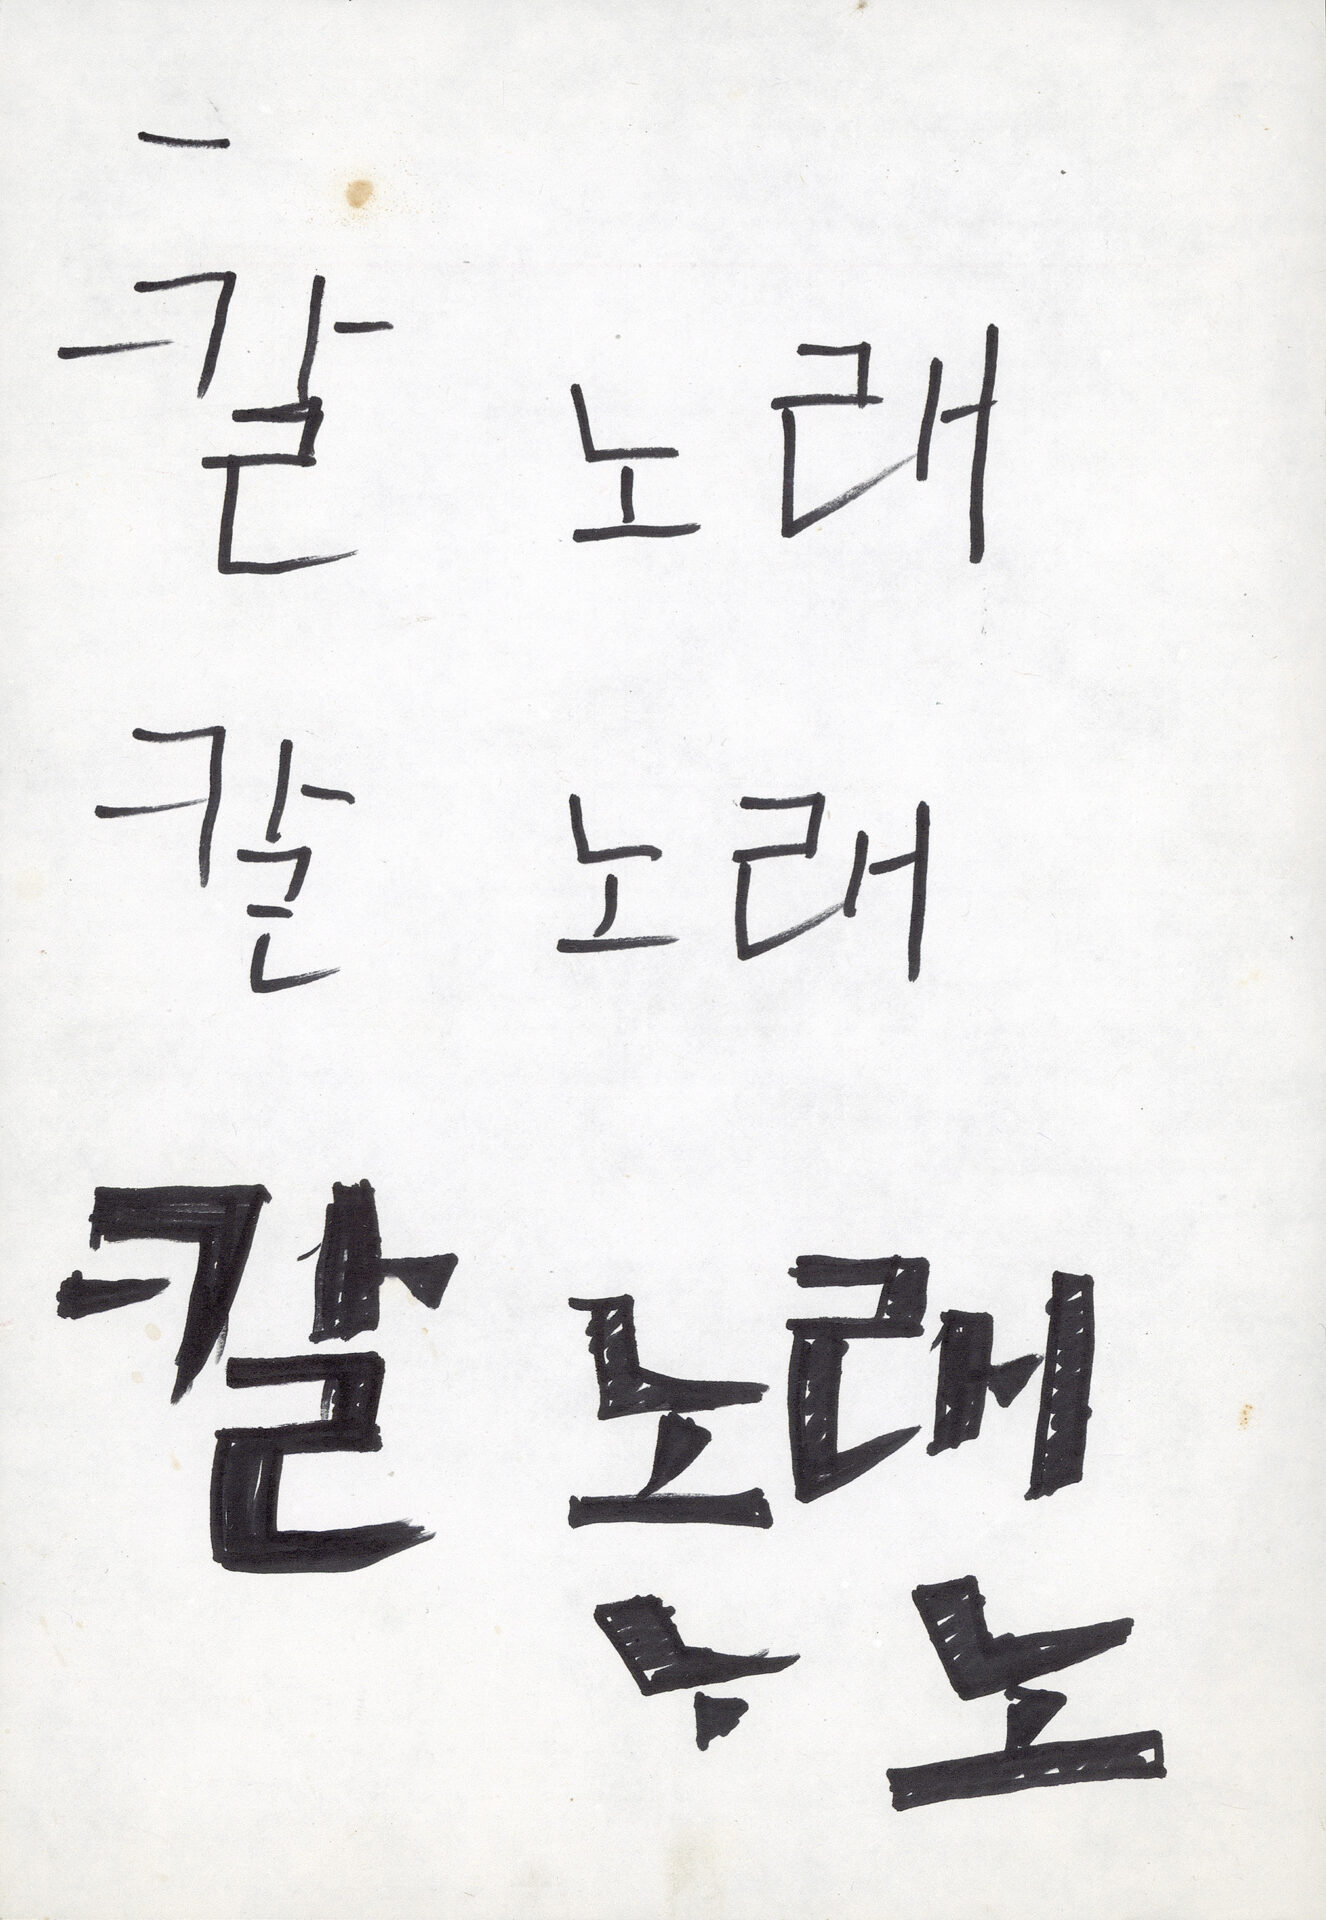 칼 노래
칼 노래
칼 노래
노